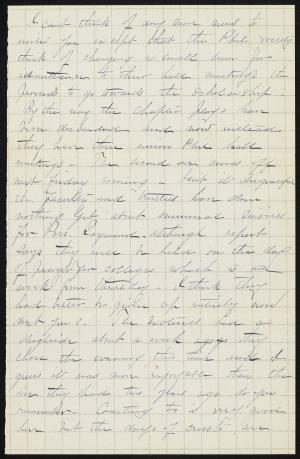 I can't think of any more news to
write you except that the Phil society
think of charging a small sum for
admittance to their hall meetings the
proceeds to go towards the scholarship.
By the way the Chapter plays have
been and now instead
they have them in Phil hall
meetings. The second one comes off
next Friday evening. Isn't it disgraceful
the faculty and trustees have done
nothing yet about memorial services
for Pres. Raymond, although report
says they will be held on the day
of prayer for colleges which is one
week from Thursday. I think they
had better be given up entirely now
don't you? The have an
about a week ago they
close the evening this time and I
guess it was more enjoyable than the
one they had two years ago do you
remember. Coasting too is very good
here but the days of crust are